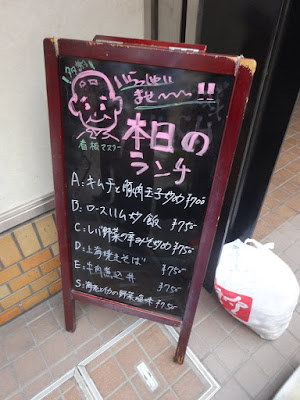 いらっしゃい
ませ〜〜!!
看板マスター
本日の
ランチ
A:キムチと豚肉玉子炒め ¥700
B:ロースハム炒飯 ¥750
C:レバ野菜の辛みそ炒め ¥750
D:上海焼きそば ¥750
E:牛肉煮込丼 ¥750
S:海老とイカの野菜塩味 ¥750